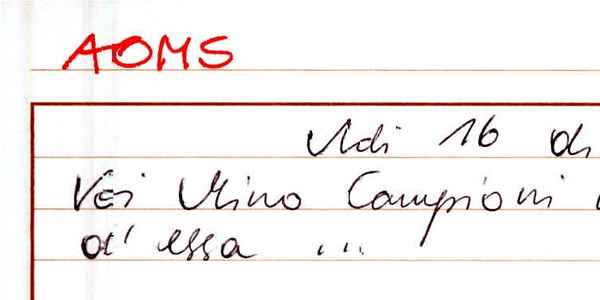 AOMS
Adi 16 di
Mino Campioni
d' essa ...